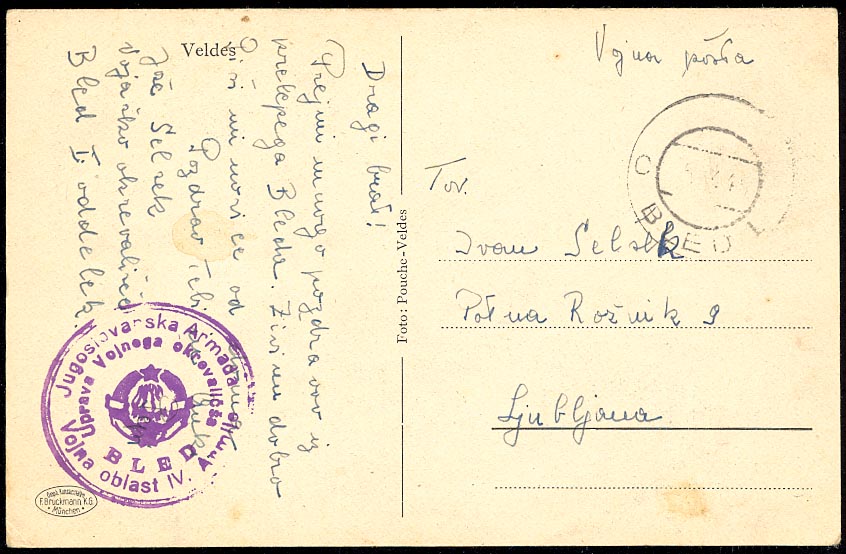 Veldes
Dragi brat!
Prejmi mnogo pozdravov iz
prelepega Bleda. Živim dobro
Piši mi novice od
Pozdrav Tebi
Jože Selšek
Vojaško okrevališče
Bled I. oddelek.
Jugoslovanska Armada
Uprava Vojnega okrevališča
BLED
Vojna oblast IV. Armije
Graph. Kunstanstalten
F. Bruckmann K.G.
München
Foto: Pouche-Veldes
Vojna pošta
BLED
Tov.
Ivan Selšek
Pot na Rožnik 9
Ljubljana